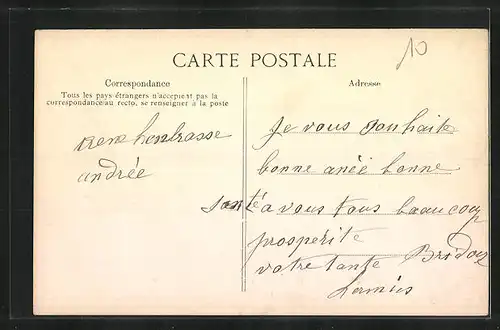 10
CARTE POSTALE
Correspondance
Tous les pays étrangers n'acceptent pas la
correspondance au recto, se renseigner à la poste
Adresse
andrée
Je vous souhaite
bonne anéé bonne
santé a vous tous beaucoup
prosperite
votre tante Bridou